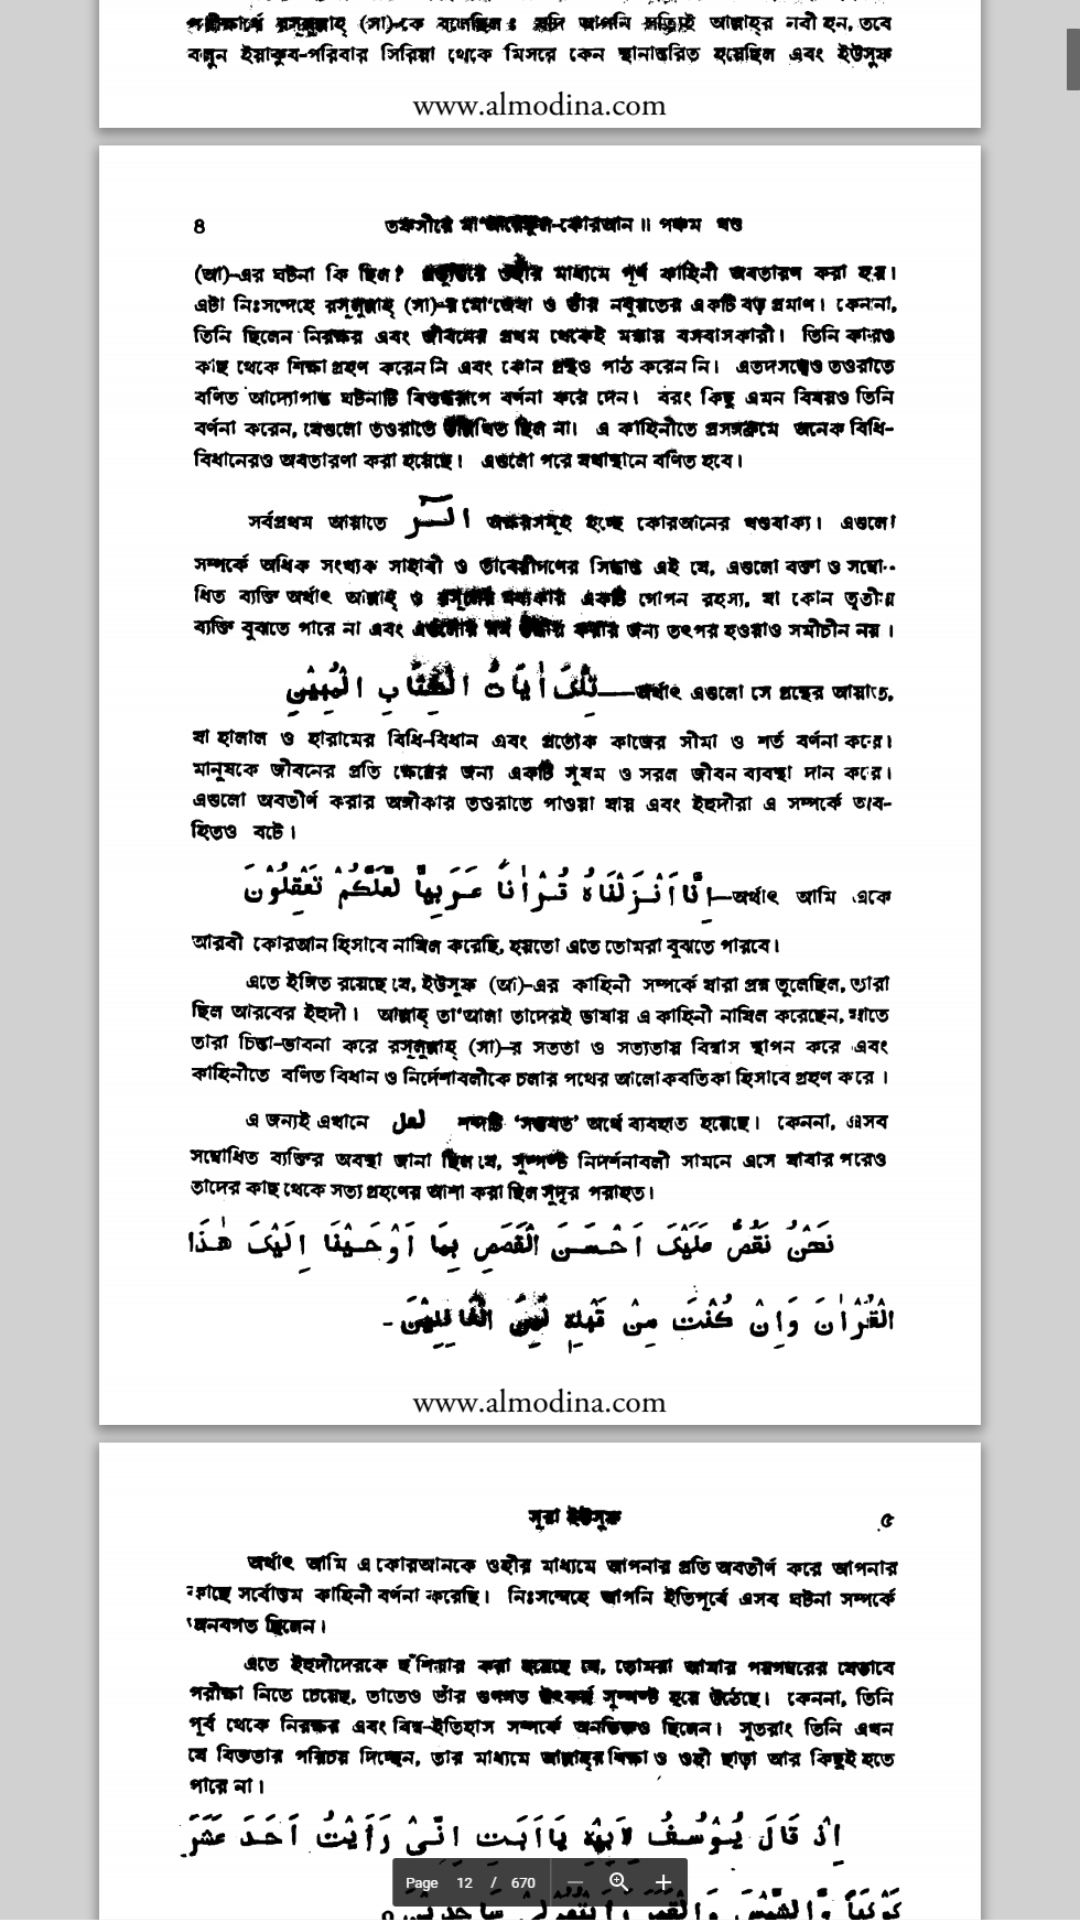 পরীক্ষার্থে রসূলুল্লাহ্ (সা)-কে বলেছিল : যদি আপনি সত্যিই আল্লাহ্‌র নবী হন, তবে
বলুন ইয়াকুব-পরিবার সিরিয়া থেকে মিসরে কেন স্থানান্তরিত হয়েছিল এবং ইউসুফ
www.almodina.com
৪ তফসীরে মা'আরেফুল-কোরআন ॥ পঞ্চম খণ্ড
(আ)-এর ঘটনা কি ছিল? প্রত্যুত্তরে ওহীর মাধ্যমে পূর্ণ কাহিনী অবতারণ করা হয়।
এটা নিঃসন্দেহে রসূলুল্লাহ্ (সা)-র মো'জেযা ও তাঁর নবুয়তের একটি বড় প্রমাণ। কেননা,
তিনি ছিলেন নিরক্ষর এবং জীবনের প্রথম থেকেই মক্কায় বসবাসকারী। তিনি কারও
কাছ থেকে শিক্ষা গ্রহণ করেন নি এবং কোন গ্রন্থও পাঠ করেন নি। এতদসত্ত্বেও তওরাতে
বর্ণিত আদ্যোপান্ত ঘটনাটি বিশুদ্ধরূপে বর্ণনা করে দেন। বরং কিছু এমন বিষয়ও তিনি
বর্ণনা করেন, যেগুলো তওরাতে উল্লিখিত ছিল না। এ কাহিনীতে প্রসঙ্গক্রমে অনেক বিধি-
বিধানেরও অবতারণা করা হয়েছে। এগুলো পরে যথাস্থানে বর্ণিত হবে।
সর্বপ্রথম আয়াতে الٓرٰ অক্ষরসমূহ হচ্ছে কোরআনের খণ্ডবাক্য। এগুলো
সম্পর্কে অধিক সংখ্যক সাহাবী ও তাবেয়ীগণের সিদ্ধান্ত এই যে, এগুলো বক্তা ও সম্বো-
ধিত ব্যক্তি অর্থাৎ আল্লাহ্ ও রসূলের মধ্যকার একটি গোপন রহস্য, যা কোন তৃতীয়
ব্যক্তি বুঝতে পারে না এবং এগুলোর মর্ম উদ্ধার করার জন্য তৎপর হওয়াও সমীচীন নয়।
تِلْكَ اٰيَاتُ الْكِتَابِ الْمُبِيْنِ—অর্থাৎ এগুলো সে গ্রন্থের আয়াত,
যা হালাল ও হারামের বিধি-বিধান এবং প্রত্যেক কাজের সীমা ও শর্ত বর্ণনা করে।
মানুষকে জীবনের প্রতি ক্ষেত্রের জন্য একটি সুষম ও সরল জীবন ব্যবস্থা দান করে।
এগুলো অবতীর্ণ করার অঙ্গীকার তওরাতে পাওয়া যায় এবং ইহুদীরা এ সম্পর্কে অব-
হিতও বটে।
اِنَّا اَنْزَلْنَاهُ قُرْاٰنًا عَرَبِيًّا لَّعَلَّكُمْ تَعْقِلُوْنَ—অর্থাৎ আমি একে
আরবী কোরআন হিসাবে নাযিল করেছি, হয়তো এতে তোমরা বুঝতে পারবে।
এতে ইঙ্গিত রয়েছে যে, ইউসুফ (আ)-এর কাহিনী সম্পর্কে যারা প্রশ্ন তুলেছিল, তারা
ছিল আরবের ইহুদী। আল্লাহ্ তা'আলা তাদেরই ভাষায় এ কাহিনী নাযিল করেছেন, যাতে
তারা চিন্তা-ভাবনা করে রসূলুল্লাহ্ (সা)-র সততা ও সত্যতায় বিশ্বাস স্থাপন করে এবং
কাহিনীতে বর্ণিত বিধান ও নির্দেশাবলীকে চলার পথের আলোকবর্তিকা হিসাবে গ্রহণ করে।
এ জন্যই এখানে لعل শব্দটি 'সম্ভবত' অর্থে ব্যবহৃত হয়েছে। কেননা, এসব
সম্বোধিত ব্যক্তির অবস্থা জানা ছিল যে, সুস্পষ্ট নিদর্শনাবলী সামনে এসে যাবার পরেও
তাদের কাছ থেকে সত্য গ্রহণের আশা করা ছিল সুদূর পরাহত।
نَحْنُ نَقُصُّ عَلَيْكَ اَحْسَنَ الْقَصَصِ بِمَا اَوْحَيْنَا اِلَيْكَ هٰذَا
الْقُرْاٰنَ وَاِنْ كُنْتَ مِنْ قَبْلِهٖ لَمِنَ الْغَافِلِيْنَ -
www.almodina.com
সূরা ইউসুফ ৫
অর্থাৎ আমি এ কোরআনকে ওহীর মাধ্যমে আপনার প্রতি অবতীর্ণ করে আপনার
কাছে সর্বোত্তম কাহিনী বর্ণনা করেছি। নিঃসন্দেহে আপনি ইতিপূর্বে এসব ঘটনা সম্পর্কে
অনবগত ছিলেন।
এতে ইহুদীদেরকে হুঁশিয়ার করা হয়েছে যে, তোমরা আমার পয়গম্বরের যেভাবে
পরীক্ষা নিতে চেয়েছ, তাতেও তাঁর গুণগত উৎকর্ষ সুস্পষ্ট হয়ে উঠেছে। কেননা, তিনি
পূর্ব থেকে নিরক্ষর এবং বিশ্ব-ইতিহাস সম্পর্কে অনভিজ্ঞও ছিলেন। সুতরাং তিনি এখন
যে বিজ্ঞতার পরিচয় দিচ্ছেন, তার মাধ্যমে আল্লাহ্‌র শিক্ষা ও ওহী ছাড়া আর কিছুই হতে
পারে না।
اِذْ قَالَ يُوْسُفُ لِاَبِيْهِ يَااَبَتِ اِنِّىْ رَاَيْتُ اَحَدَ عَشَرَ
كَوْكَبًا وَّالشَّمْسَ وَالْقَمَرَ رَاَيْتُهُمْ لِىْ سَاجِدِيْنَ
Page 12 / 670